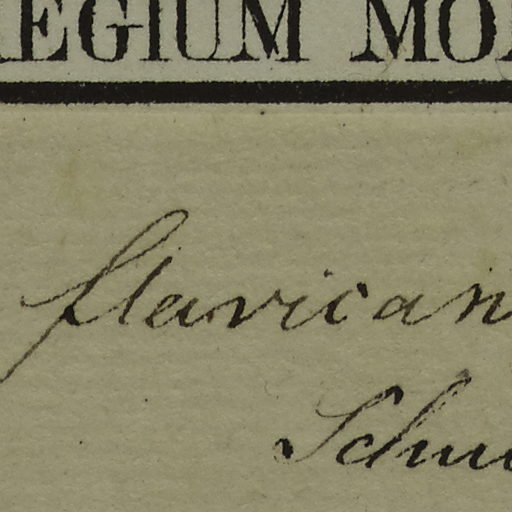 REGIUM MO
flavican
Schu